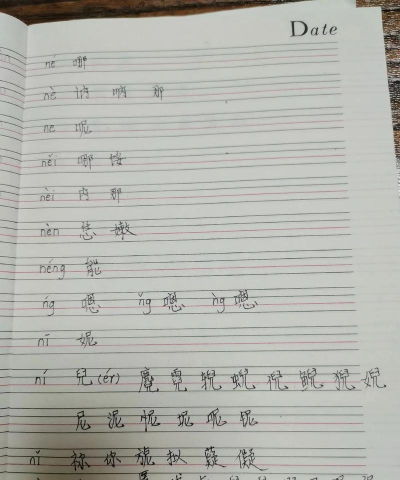 Date
né 哪
nè 讷 呐 那
ne 呢
něi 哪 馁
nèi 内 那
nèn 恁 嫩
néng 能
ńg 嗯 ňg 嗯 ǹg 嗯
nī 妮
ní 兒(ér) 麑 霓 猊 蜺 倪 鲵 猊 婗
尼 泥 怩 坭 呢 铌
nǐ 祢 你 旎 拟 薿 儗